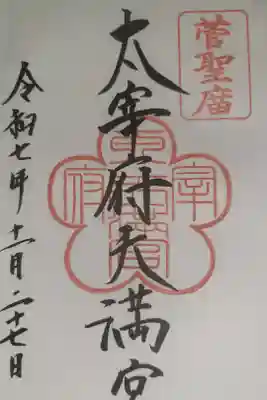 菅聖廟
太宰府天満宮
令和七年十一月二十七日